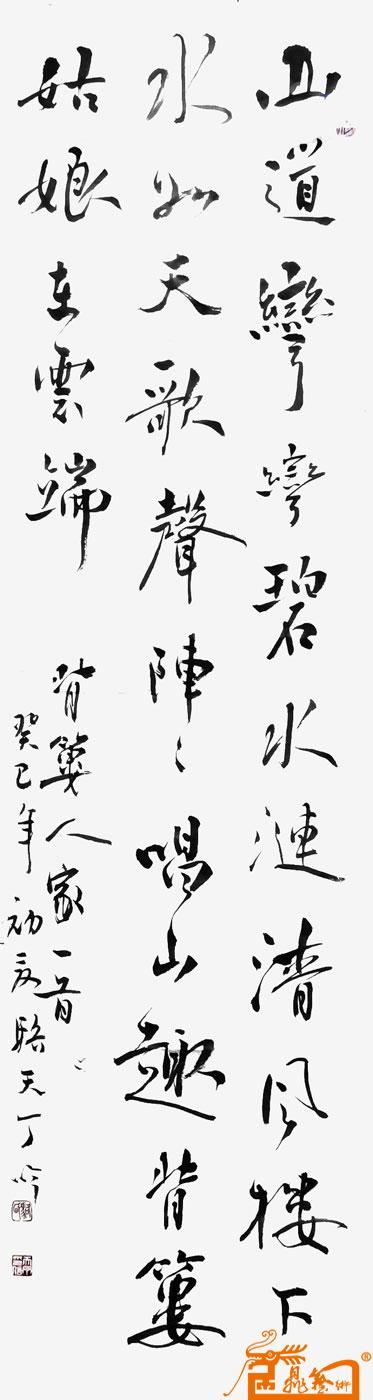 山道彎彎碧水漣清风樓下
水如天歌聲陣〻唱山趣背簍
姑娘在雲端
背簍人家一首
癸巳年初夏駱天丁吟